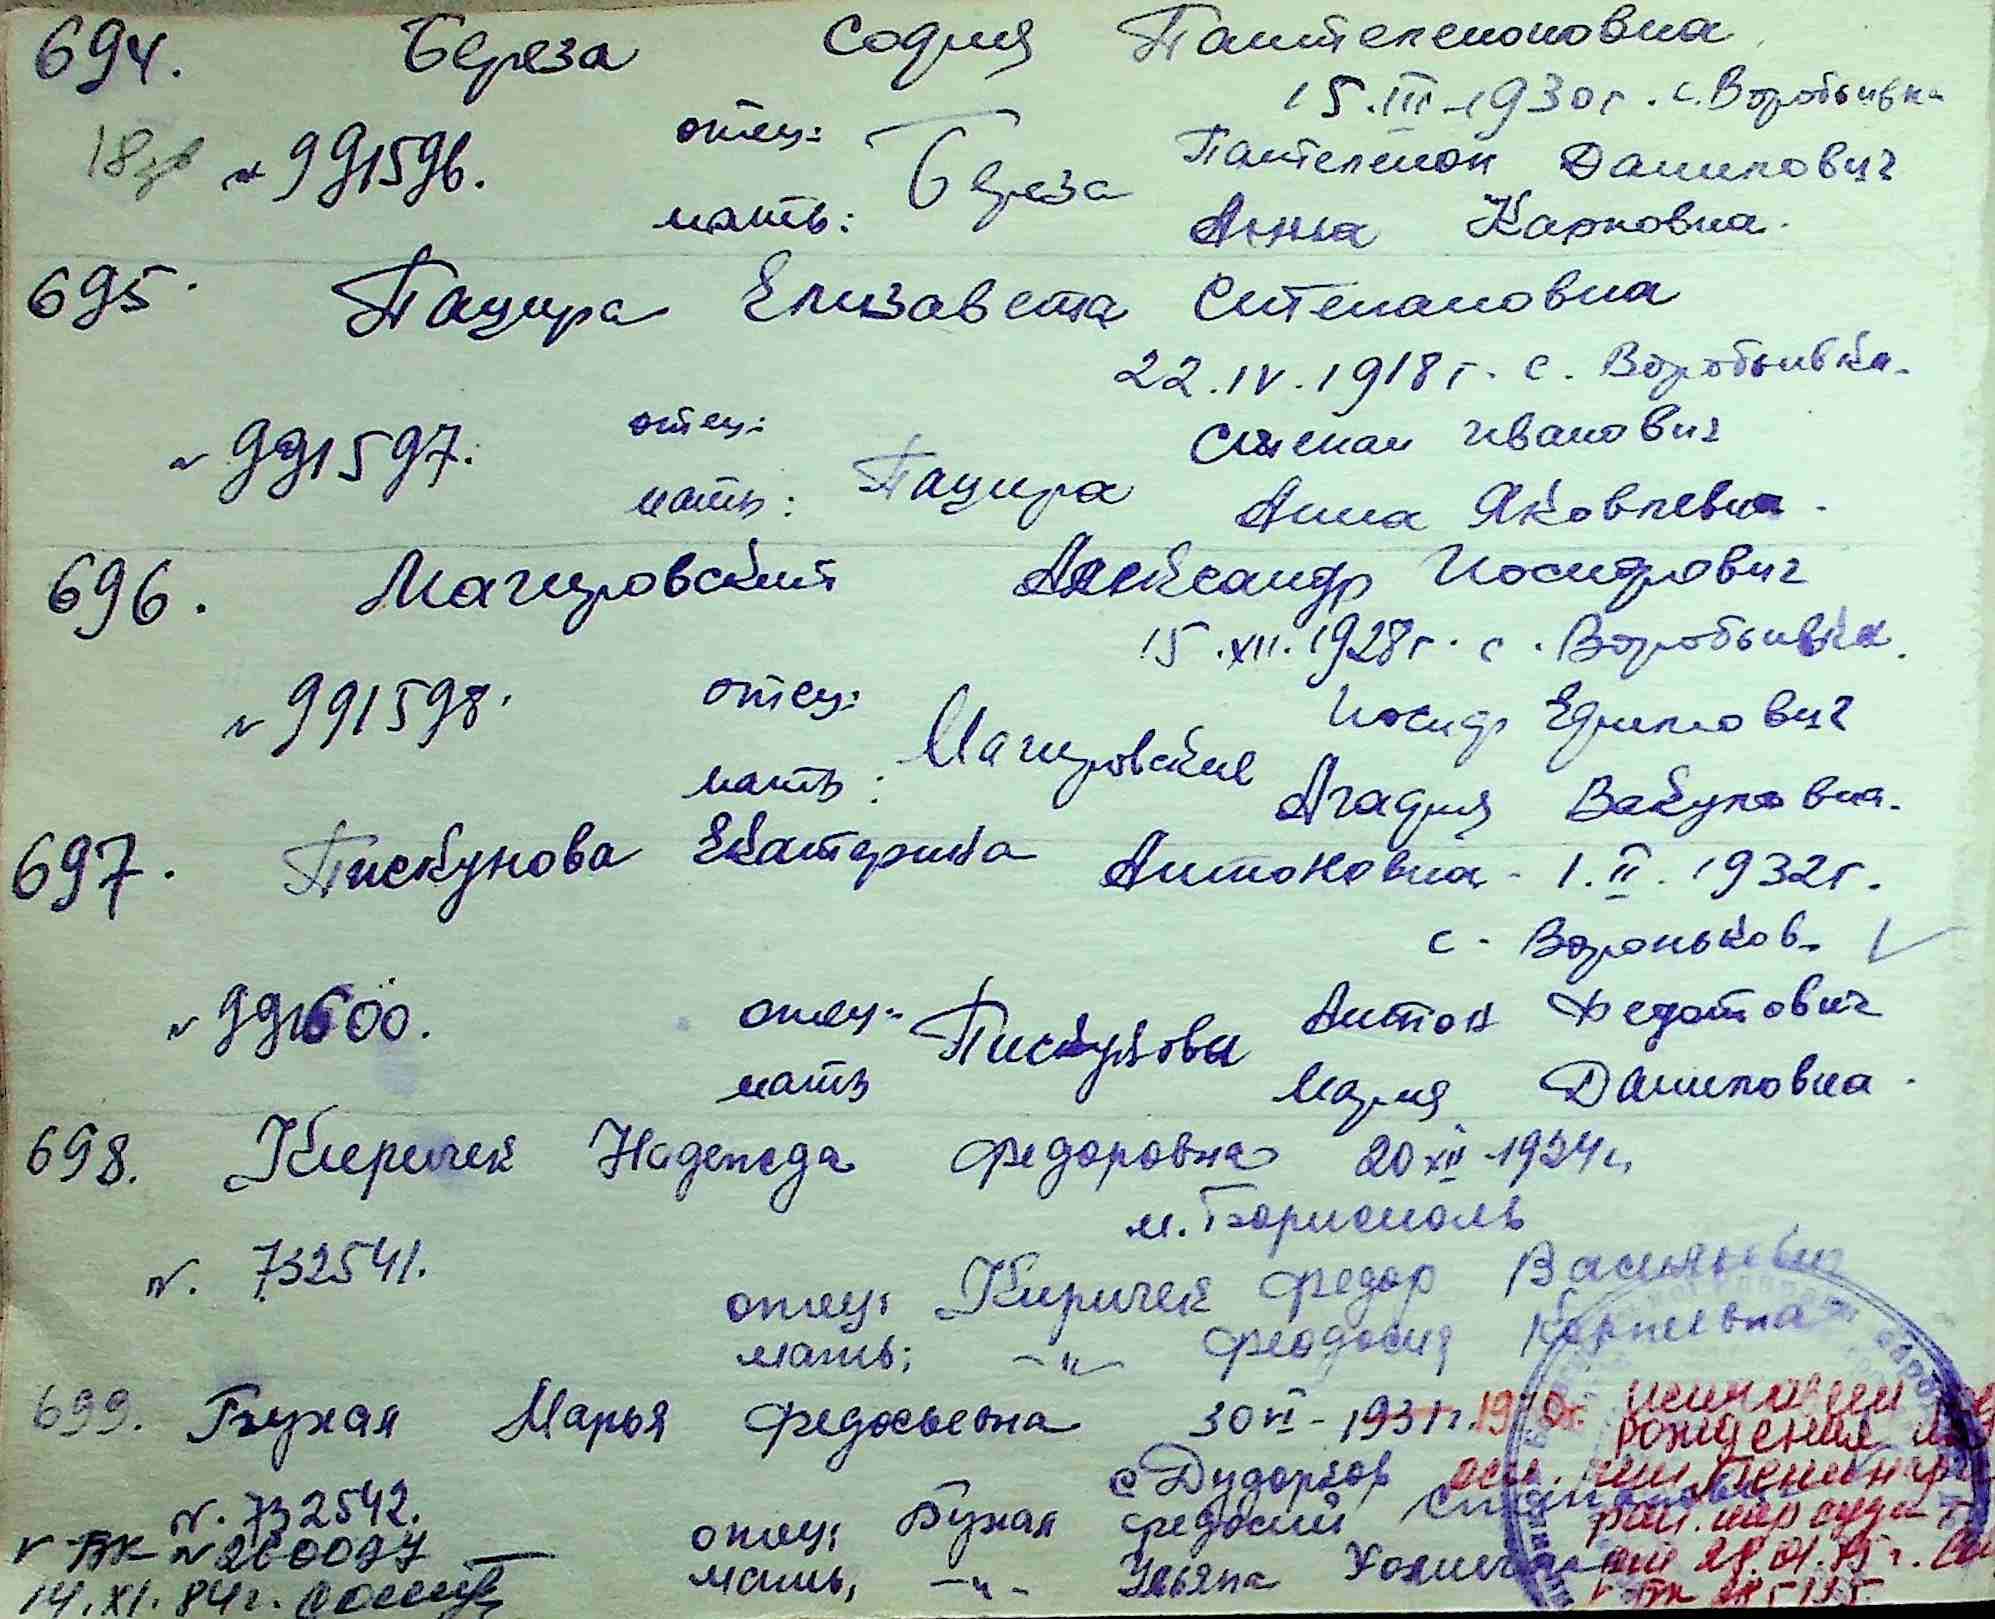 694. Береза София Пантелемоновна
15.III-1930г. с. Воробьивка
№ 991596. отец: Береза Пантелемон Данилович
мать: Анна Карповна.
695. Пацира Елизавета Степановна
22.IV.1918г. с. Воробьивка.
№ 991597. отец: Пацира Степан Иванович
мать: Анна Яковлевна.
696. Магировский Александр Иосифович
15.XII.1928г. с. Воробьивка.
№ 991598. отец: Магировские Иосиф Ефимович
мать: Агафия Вакуловна.
697. Пискунова Екатерина Антоновна - 1.II.1932г.
с. Вороньков.
№ 991600. отец: Пискуновы Антон Федотович
мать Мария Даниловна.
698. Киричек Надежда Федоровна 20 XII 1924г.
м. Борисполь
№. 732541.
отец: Киричек Федор
мать: -"- Феодосия Корнеевна
699. Бухая Марья Федосьевна 30 VI - 1931г. 1930г.
рождения
с Дударков
№. 732542. отец: Бухая Федосий
№ 260097 мать, -"- Ульяна
14.XI.84г.
от 28.01.85г.